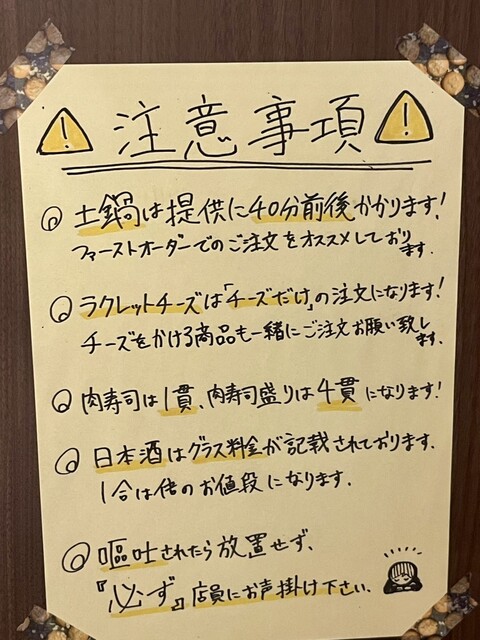 注意事項
土鍋は提供に40分前後かかります!
ファーストオーダーでのご注文をオススメしております.
ラクレットチーズは「チーズだけ」の注文になります!
チーズをかける商品も一緒にご注文お願い致します.
肉寿司は1貫、肉寿司盛りは4貫になります!
日本酒はグラス料金が記載されております.
1合は倍のお値段になります.
嘔吐されたら放置せず、
『必ず』店員にお声掛け下さい.